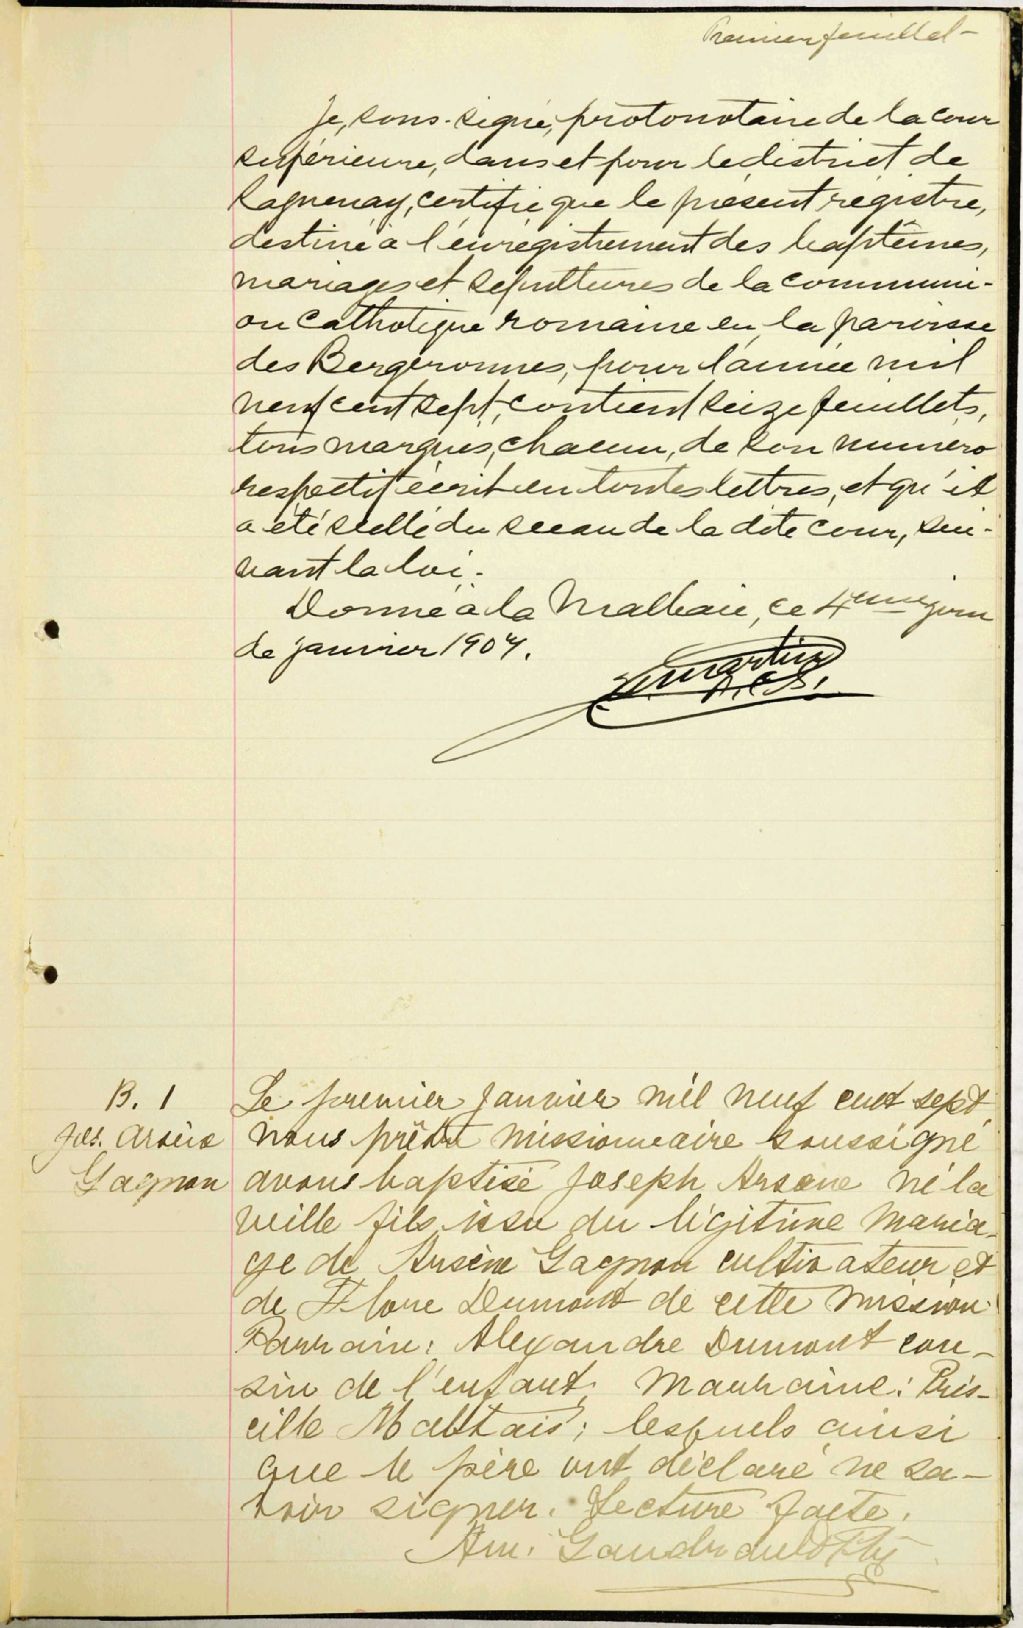 Premier feuillet-
Je, sous-signé, protonotaire de la cour
supérieure, dans et pour le district de
Saguenay, certifie que le présent régistre,
destiné à l'enrégistrement des baptêmes,
mariages et sépultures de la communi-
on catholique romaine en la paroisse
des Bergeronnes, pour l'année mil
neuf cent sept, contient seize feuillets,
tous marqués, chacun, de son numéro
respectif écrit en toutes lettres, et qu'il
a été scellé du sceau de la dite cour, sui-
vant la loi.
Donné à la Malbaie, ce 4eme jour
de janvier 1907.
Martin
P.C.S.
B. 1
Jos. Arsène
Gagnon
Le premier Janvier mil neuf cent sept
nous prêtre missionnaire soussigné
avons baptisé Joseph Arsène né la
veille fils issu du légitime maria-
ge de Arsène Gagnon cultivateur et
de Flore Dumont de cette mission
Parrain: Alexandre Dumont cou-
sin de l'enfant, Marraine: Pris-
cille Maltais; lesquels ainsi
que le père ont déclaré ne sa-
voir signer. Lecture faite.
Am. Gaudreault Ptre